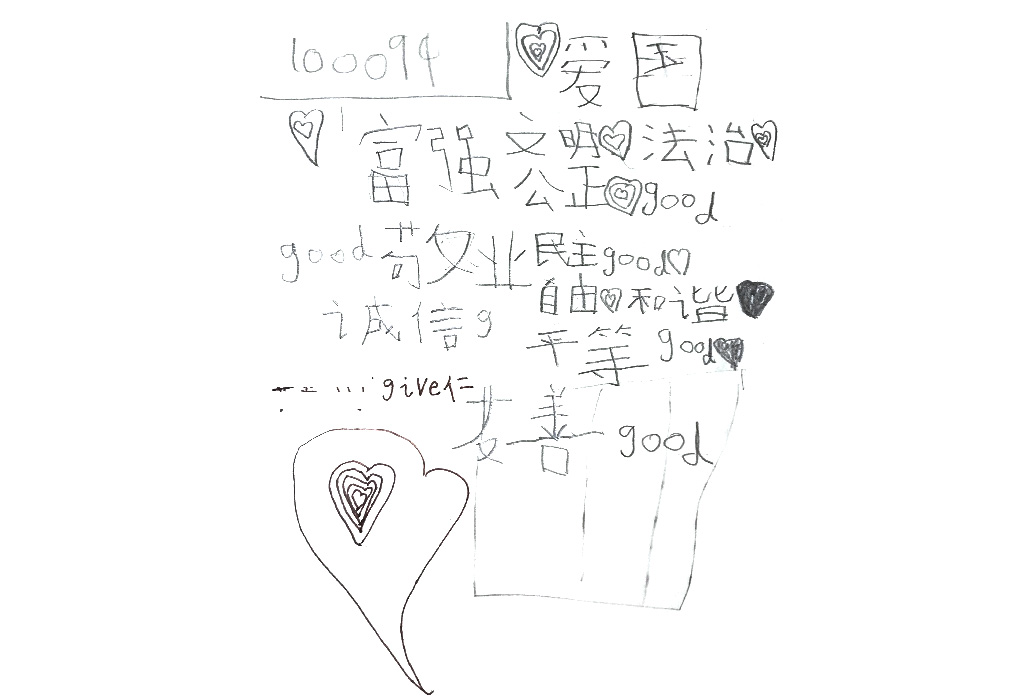 100094
爱国
富强 文明 法治
公正 good
good 敬业 民主 good
自由 和谐
诚信 g 平等 good
give仁
友善 good